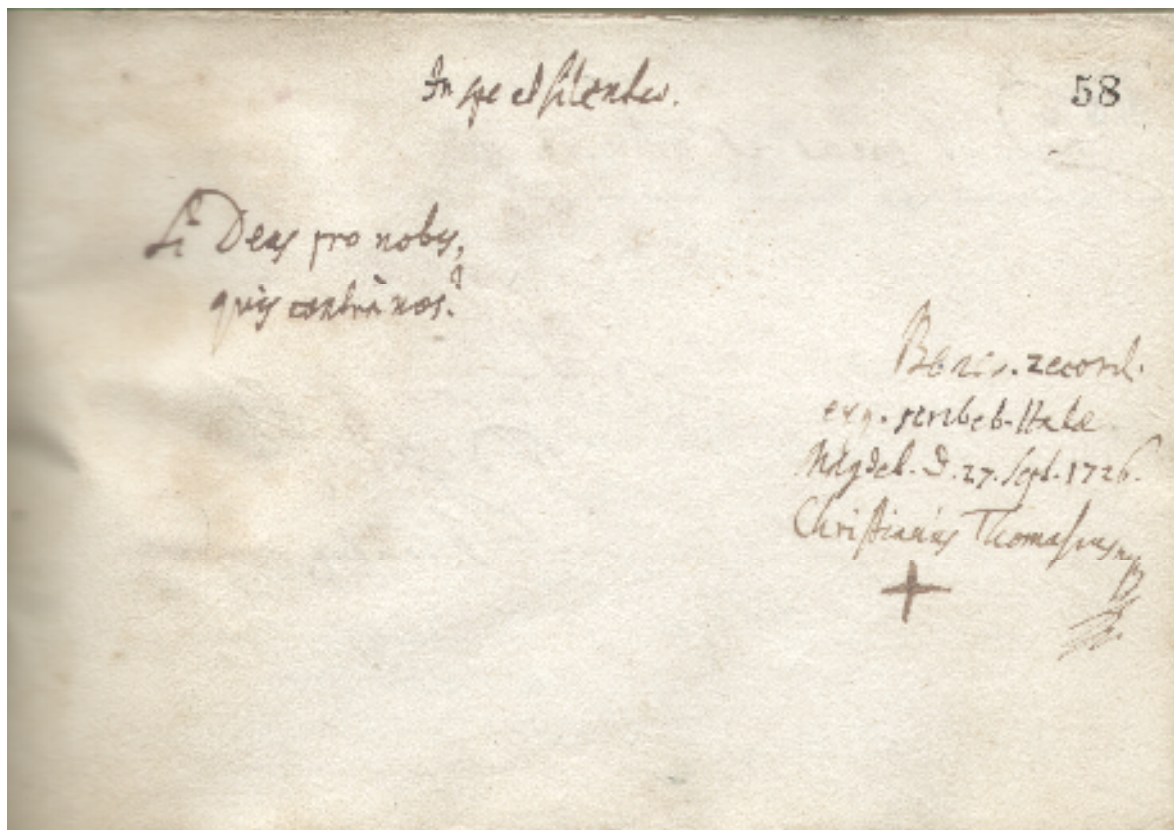 In spe et silentio.
58
Si Deus pro nobis,
quis contrà nos?
Benev. record.
erg. scribeb. Halae
Magdeb. D. 27. Sept. 1726.
Christianus Thomasius